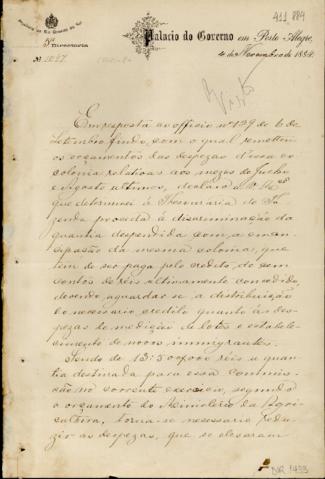 411 889
Palacio do Governo em Porto Alegre,
4 de Novembro de 1884.
Em resposta ao officio nº 129 de 6 de
Setembro findo, com o qual remetteu
os orçamentos das despezas d'essa ex
colonia relativas aos mezes de Julho
e Agosto ultimos, declaro a
que determinei à Thesouraria de Fa
zenda proceda à discriminação da
quantia despendida com a eman
cipação da mesma colonia, que
tem de ser paga pelo credito, de cem
contos de réis ultimamente concedido,
devendo aguardar-se a distribuição
do necessario credito quanto às des
pezas de medição de lotes e estabele
cimento de novos immigrantes.
Sendo de réis a quan
tia destinada para essa Commis
são no corrente exercicio, segundo
o orçamento do Ministerio da Agri
cultura, torna-se necessario redu
zir as despezas, que se elevaram